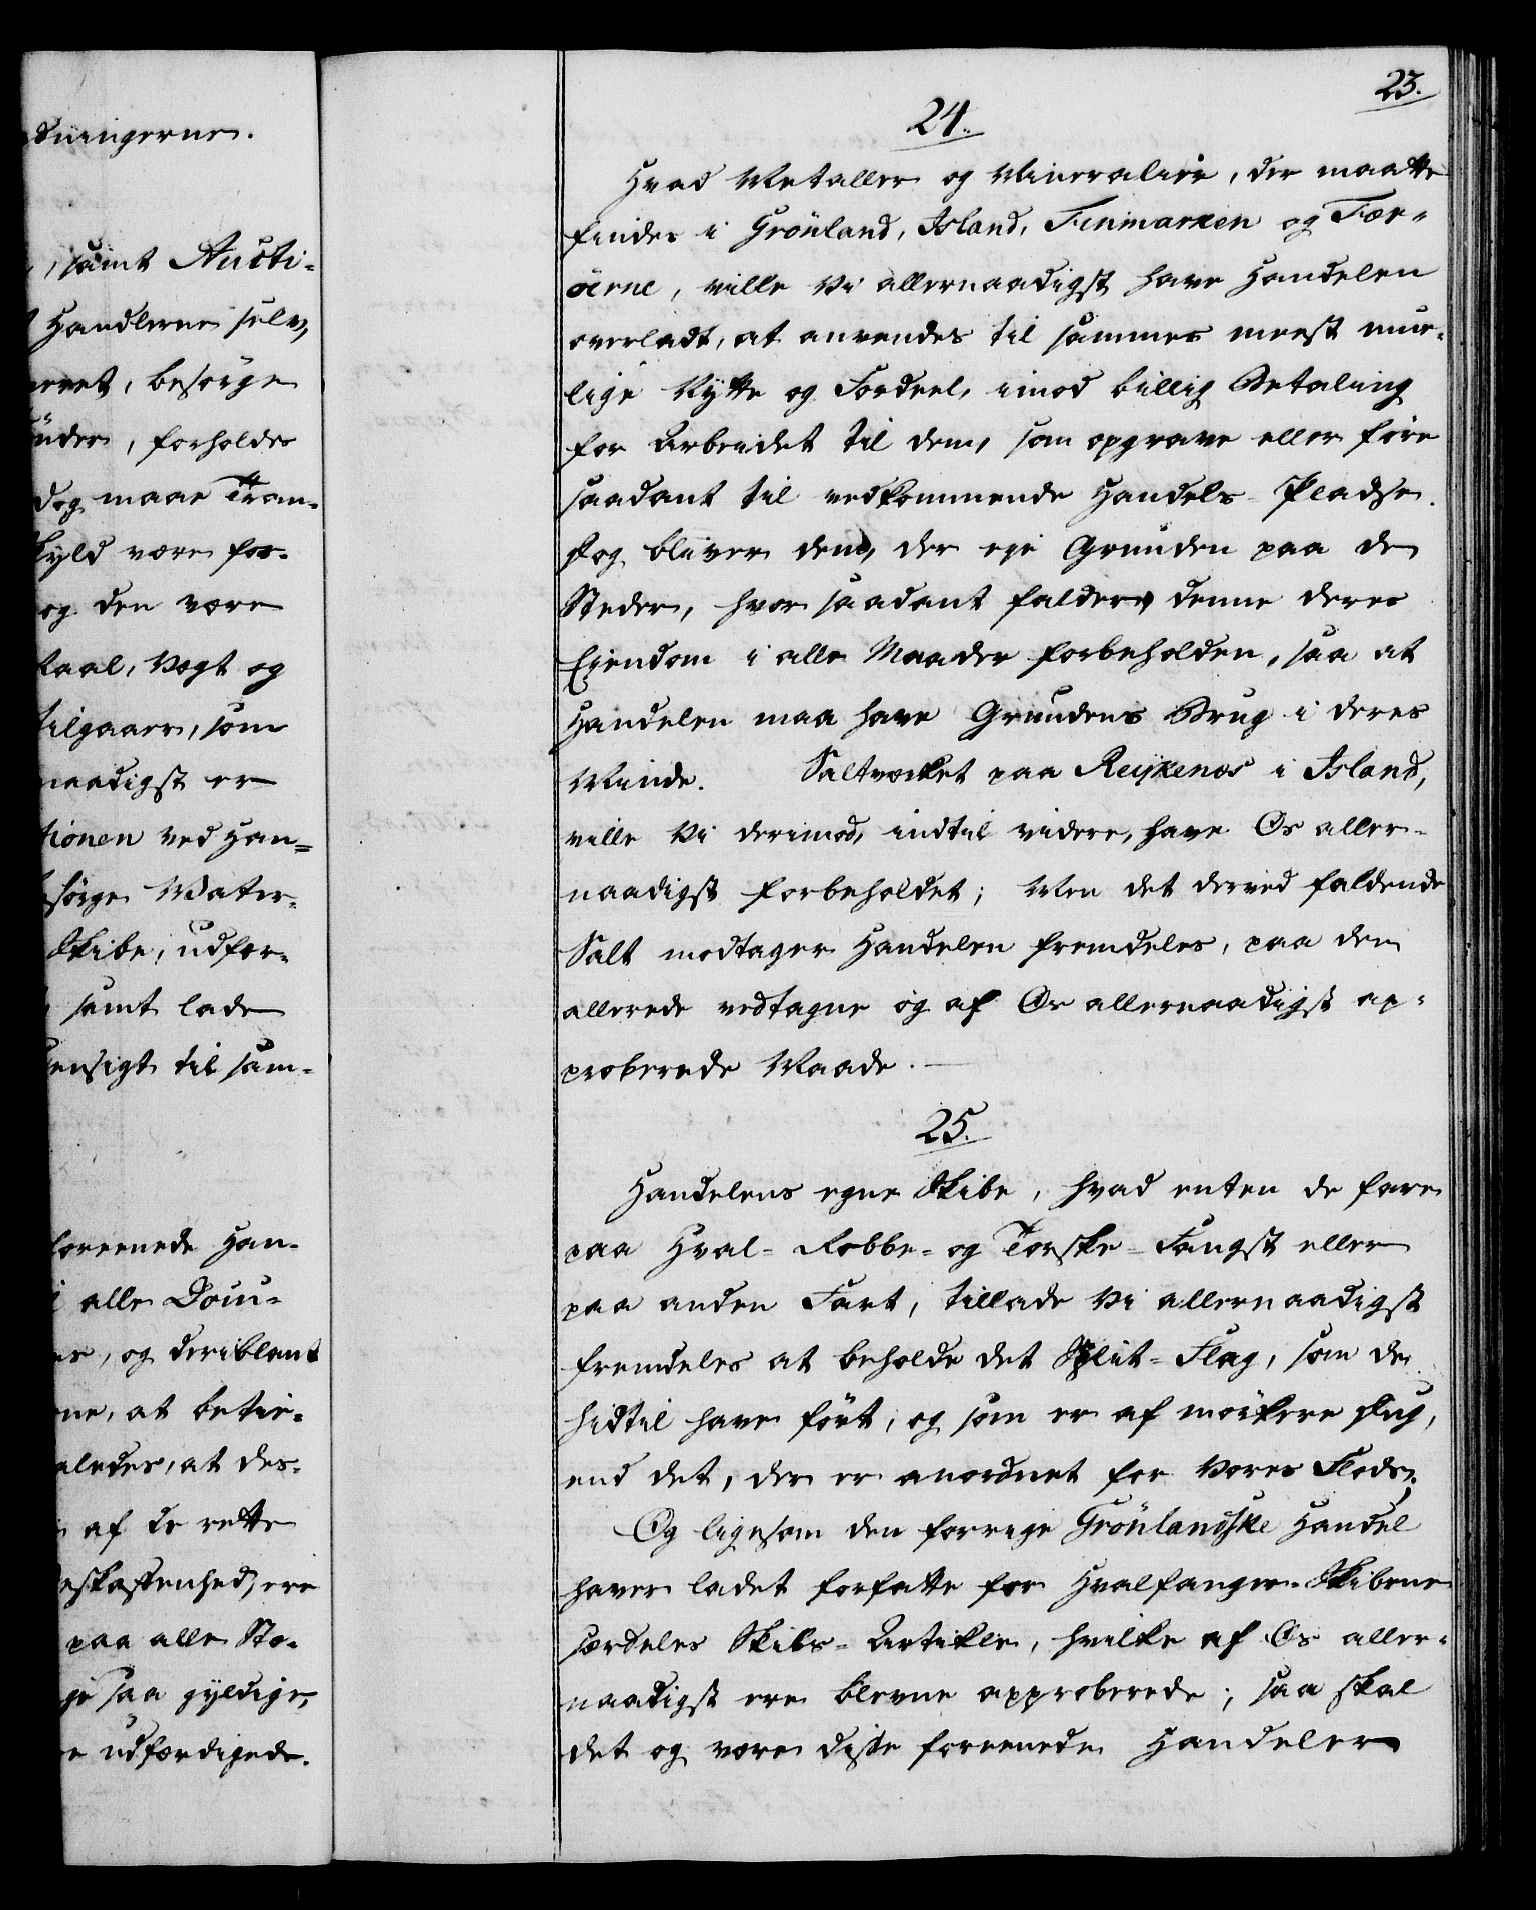 dningerne.
, samt Aucti-
Handlerne selv,
eret, besörge
ünder, forholdes
dog maae Tran-
skyld være for-
og den være
taal, Vogt og
tilgaaer, som
naadigst er
tionen ved Han-
sörge Mater-
Skibe, udfor-
samt lade
hensigt til sam-
foreenede Han-
i alle Dom-
es, og deriblant
ne, at betie-
aledes, at des-
af de rette
eskaffenhed, ere
paa alle Sto-
ge saa gyldige,
e udfærdigede.
23.
24.
Hvad Metaller og Mineralier, der maatte
findes i Grönland, Island, Finmarken og Fær-
öerne, ville Vi allernaadigst have Handelen
overladt, at anvendes til sammes meest mue-
lige Nytte og Fordeel, imod billig Betaling
for Arbeidet til dem, som opgrave eller före
saadant til vedkommende Handels-Pladse.
Dog bliver dem, der eje Grunden paa de
Steder, hvor saadant falder, denne deres
Ejendom i alle Maader forbeholden, saa at
Handelen maa have Grundens Brug i deres
Minde. Saltværket paa Reykenæs i Island,
ville Vi derimod, indtil videre, have Os aller-
naadigst forbeholdet; Men det derved faldende
Salt modtager Handelen fremdeles, paa den
allerede vedtagne og af Os allernaadigst ap-
proberede Maade.
25.
Handelens egne Skibe, hvad enten de fare
paa Hval- Robbe- og Torske-Fangst eller
paa anden Fart, tillade Vi allernaadigst
fremdeles at beholde det Split-Flag, som de
hidtil have fört, og som er af mörkere Dug,
end det, der er anordnet for Vores Flode.
Og ligesom den forrige Grönlandske Handel
haver ladet forfatte for Hvalfanger-Skibene
særdeles Skibs-Artikler, hvilke af Os aller-
naadigst ere blevne approberede; saa skal
det og være disse foreenede Handeler